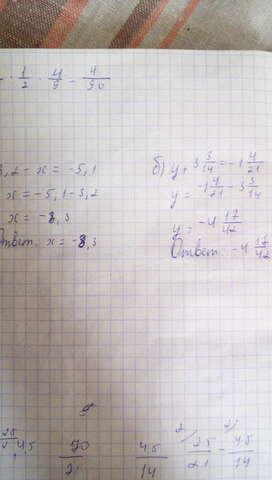 · 1/2 · 4/5 - 4/50
3,2 - x = -5,1
x = -5,1 - 3,2
x = -8,3
Ответ. x = -8,3
б) y + 3 3/14 = -1 4/21
y = -1 4/21 - 3 3/14
y = -4 17/42
Ответ. -4 17/42
4,5
70/21
45/14
25/21 - 45/14